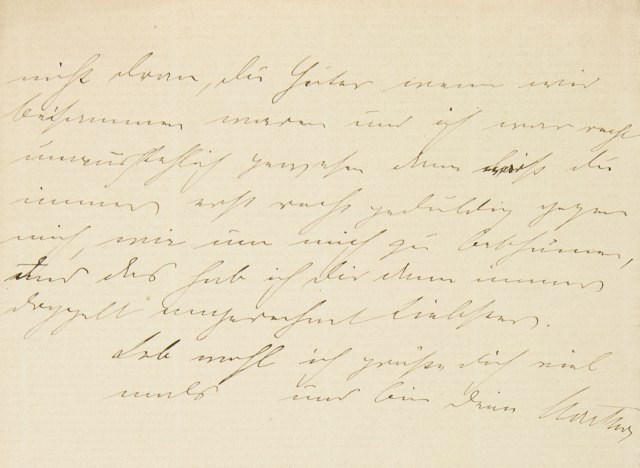 nicht dran, du Guter wenn wir
beisammen waren und ich war recht
unausstehlich gewesen dann warst du
immer erst recht geduldig gegen
mich, wie um mich zu beschämen,
und das hab ich dir dann immer
doppelt angerechnet Liebster.
Leb wohl ich grüße dich viel
mals und bin Deine